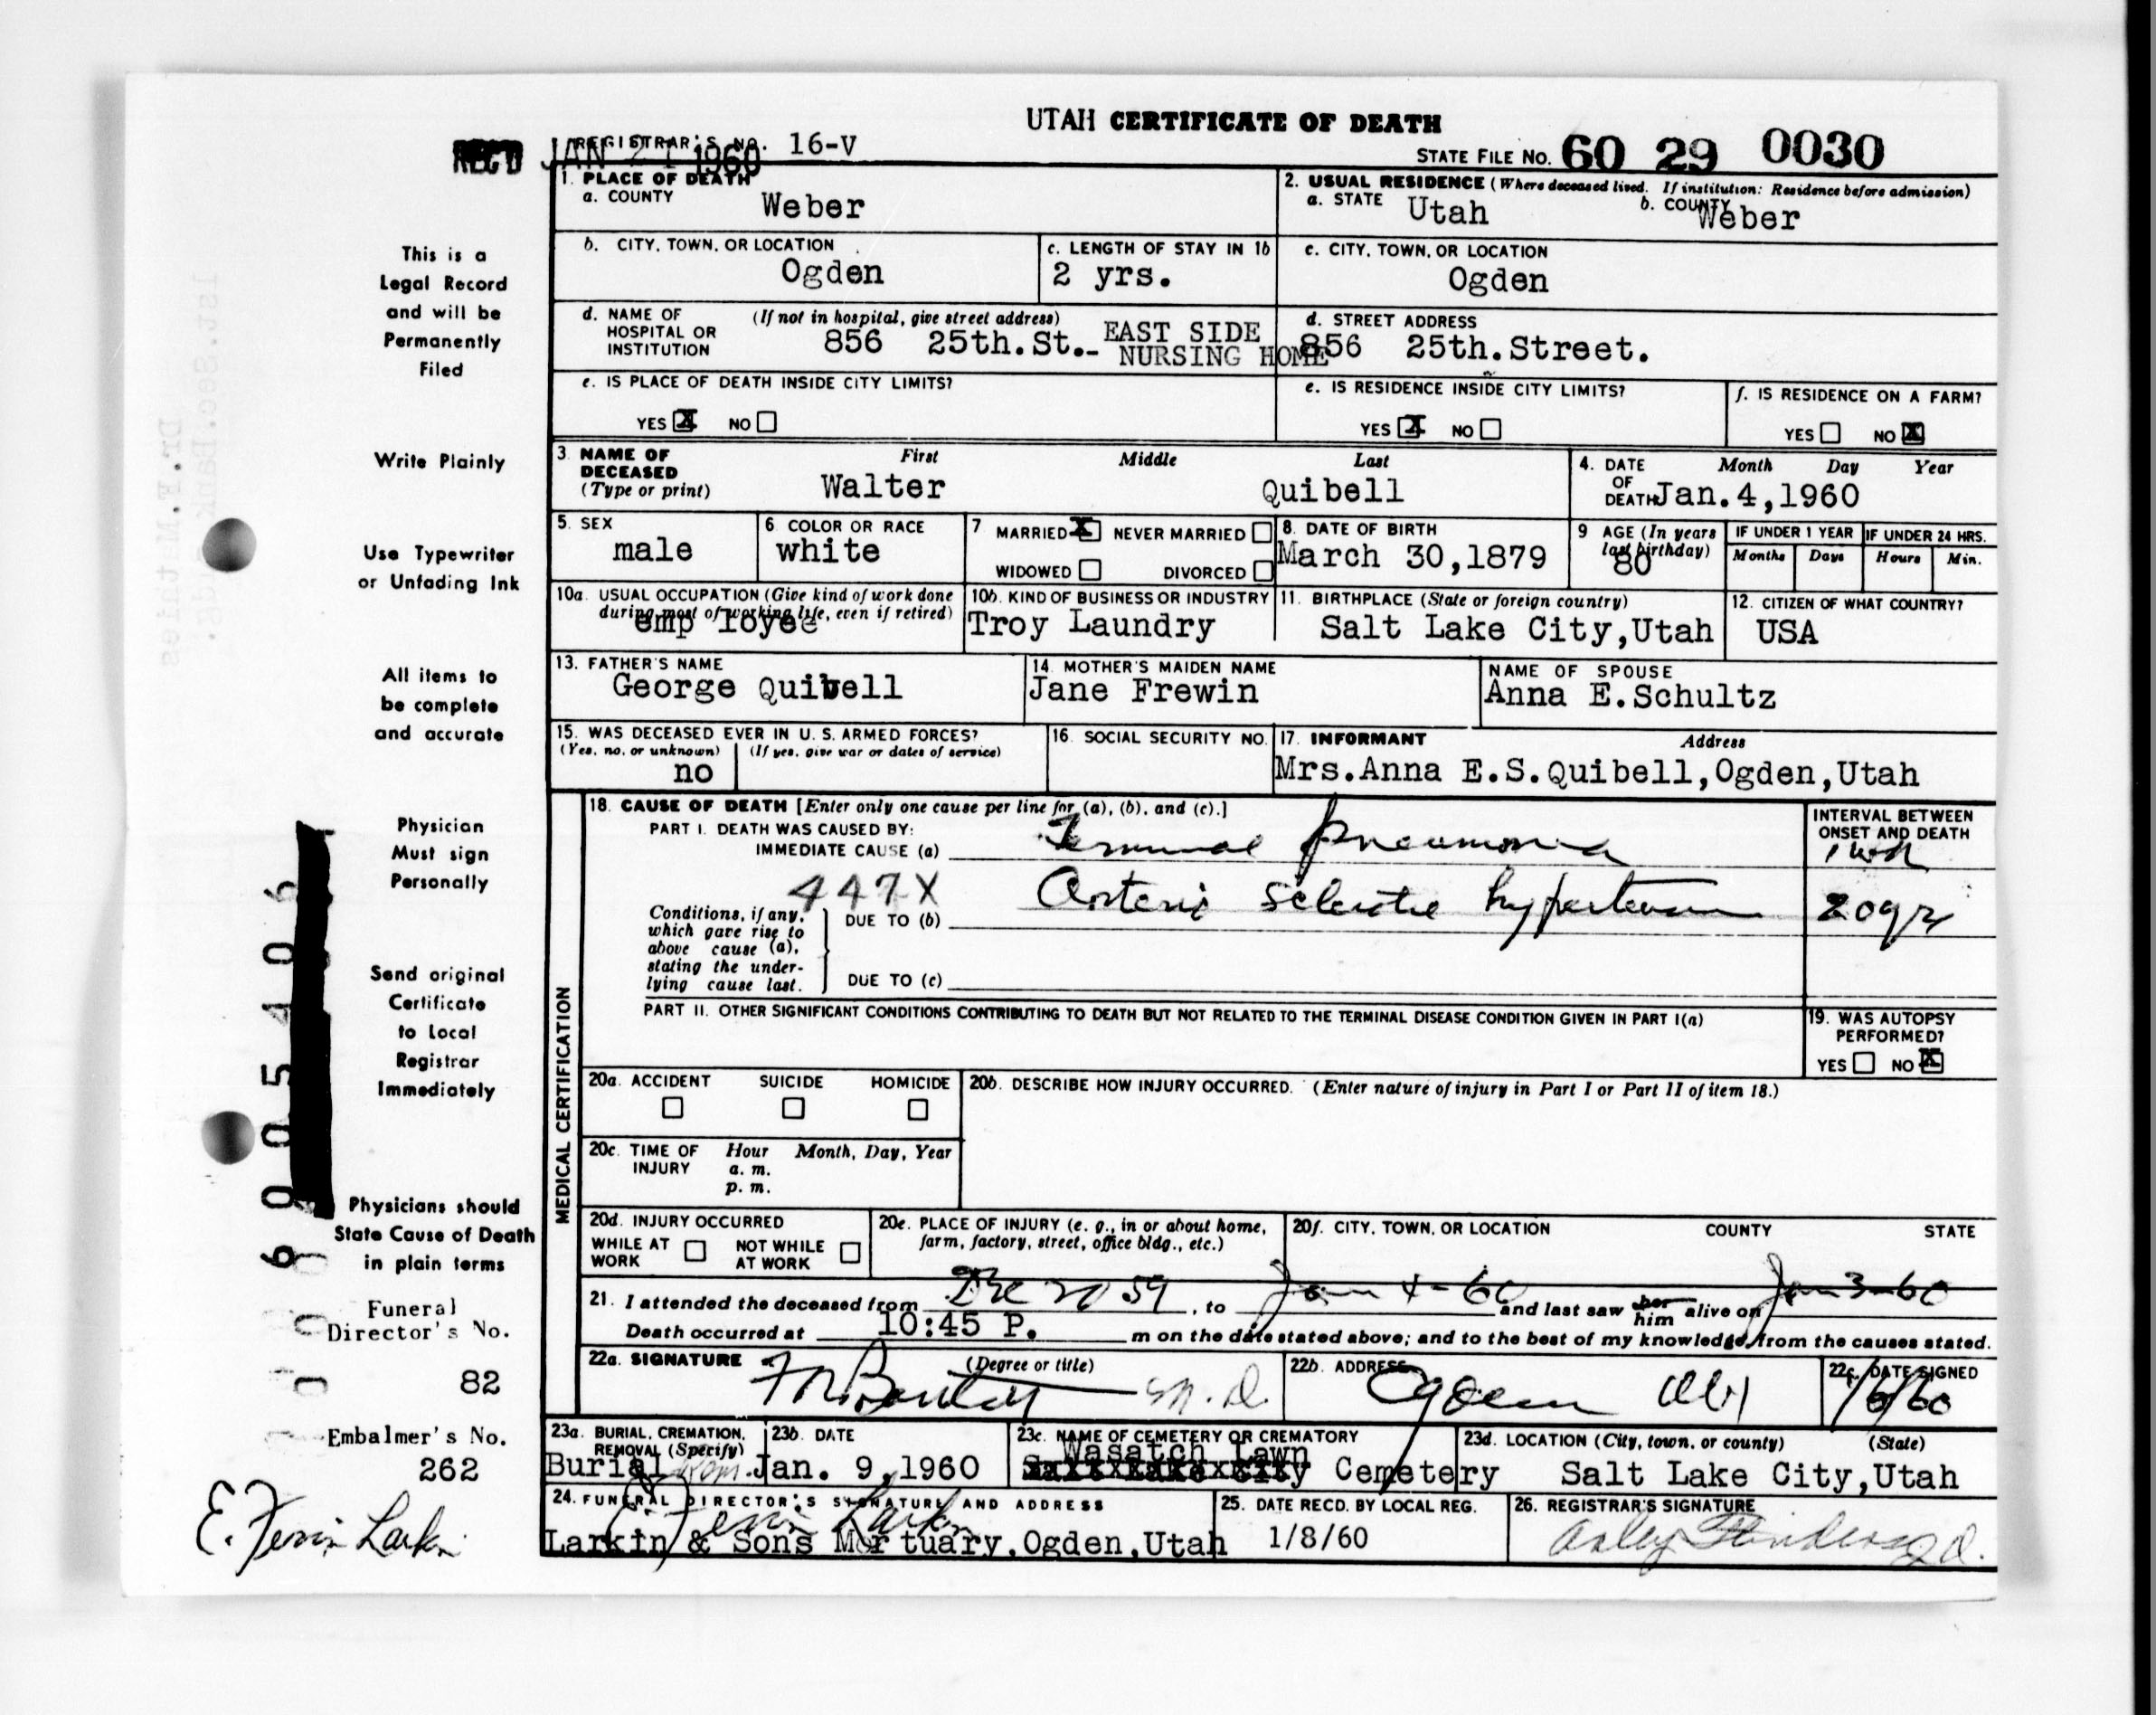 UTAH CERTIFICATE OF DEATH
REC'D JAN 21 1960 REGISTRAR'S NO. 16-V
STATE FILE NO. 60 29 0030
1. PLACE OF DEATH
a. COUNTY Weber
2. USUAL RESIDENCE (Where deceased lived. If institution: Residence before admission)
a. STATE Utah b. COUNTY Weber
b. CITY, TOWN, OR LOCATION Ogden
c. LENGTH OF STAY IN 1b 2 yrs.
c. CITY, TOWN, OR LOCATION Ogden
d. NAME OF HOSPITAL OR INSTITUTION (If not in hospital, give street address)
856 25th.St.- EAST SIDE NURSING HOME
d. STREET ADDRESS
856 25th.Street.
e. IS PLACE OF DEATH INSIDE CITY LIMITS?
YES X NO
e. IS RESIDENCE INSIDE CITY LIMITS?
YES X NO
f. IS RESIDENCE ON A FARM?
YES NO X
3. NAME OF DECEASED (Type or print) First Middle Last
Walter Quibell
4. DATE OF DEATH Month Day Year
Jan.4,1960
5. SEX male
6. COLOR OR RACE white
7 MARRIED X NEVER MARRIED
WIDOWED DIVORCED
8. DATE OF BIRTH March 30,1879
9 AGE (In years last birthday) 80
IF UNDER 1 YEAR Months Days
IF UNDER 24 HRS. Hours Min.
10a. USUAL OCCUPATION (Give kind of work done during most of working life, even if retired)
emp loyee
10b. KIND OF BUSINESS OR INDUSTRY
Troy Laundry
11. BIRTHPLACE (State or foreign country)
Salt Lake City,Utah
12. CITIZEN OF WHAT COUNTRY?
USA
13. FATHER'S NAME
George Quibell
14. MOTHER'S MAIDEN NAME
Jane Frewin
NAME OF SPOUSE
Anna E.Schultz
15. WAS DECEASED EVER IN U. S. ARMED FORCES?
(Yes, no, or unknown) (If yes, give war or dates of service)
no
16. SOCIAL SECURITY NO.
17. INFORMANT Address
Mrs.Anna E.S.Quibell,Ogden,Utah
MEDICAL CERTIFICATION
18. CAUSE OF DEATH [Enter only one cause per line for (a), (b), and (c).]
PART I. DEATH WAS CAUSED BY:
IMMEDIATE CAUSE (a) Terminal pneumonia
INTERVAL BETWEEN ONSET AND DEATH
1 wk
447X
Conditions, if any, which gave rise to above cause (a), stating the underlying cause last.
DUE TO (b) Arterio Sclerotic hypertension
20 yr
DUE TO (c)
PART II. OTHER SIGNIFICANT CONDITIONS CONTRIBUTING TO DEATH BUT NOT RELATED TO THE TERMINAL DISEASE CONDITION GIVEN IN PART I(a)
19. WAS AUTOPSY PERFORMED?
YES NO X
20a. ACCIDENT SUICIDE HOMICIDE
20b. DESCRIBE HOW INJURY OCCURRED. (Enter nature of injury in Part I or Part II of item 18.)
20c. TIME OF INJURY Hour Month, Day, Year
a. m.
p. m.
20d. INJURY OCCURRED
WHILE AT WORK NOT WHILE AT WORK
20e. PLACE OF INJURY (e. g., in or about home, farm, factory, street, office bldg., etc.)
20f. CITY, TOWN, OR LOCATION COUNTY STATE
21. I attended the deceased from Dec 20 59, to Jan 4-60 and last saw her him alive on Jan 3-60
Death occurred at 10:45 P. m on the date stated above; and to the best of my knowledge, from the causes stated.
22a. SIGNATURE (Degree or title)
M.D.
22b. ADDRESS
Ogden
22c. DATE SIGNED
1/6/60
23a. BURIAL, CREMATION, REMOVAL (Specify)
Burial Rem.
23b. DATE
Jan. 9,1960
23c. NAME OF CEMETERY OR CREMATORY
Wasatch Lawn
Salt Lake City Cemetery
23d. LOCATION (City, town, or county) (State)
Salt Lake City,Utah
24. FUNERAL DIRECTOR'S SIGNATURE AND ADDRESS
E. Fervin Larkin
Larkin & Sons Mortuary,Ogden,Utah
25. DATE RECD. BY LOCAL REG.
1/8/60
26. REGISTRAR'S SIGNATURE
This is a
Legal Record
and will be
Permanently
Filed
Write Plainly
Use Typewriter
or Unfading Ink
All items to
be complete
and accurate
Physician
Must sign
Personally
Send original
Certificate
to Local
Registrar
Immediately
Physicians should
State Cause of Death
in plain terms
Funeral
Director's No.
82
Embalmer's No.
262
E. Fervin Larkin